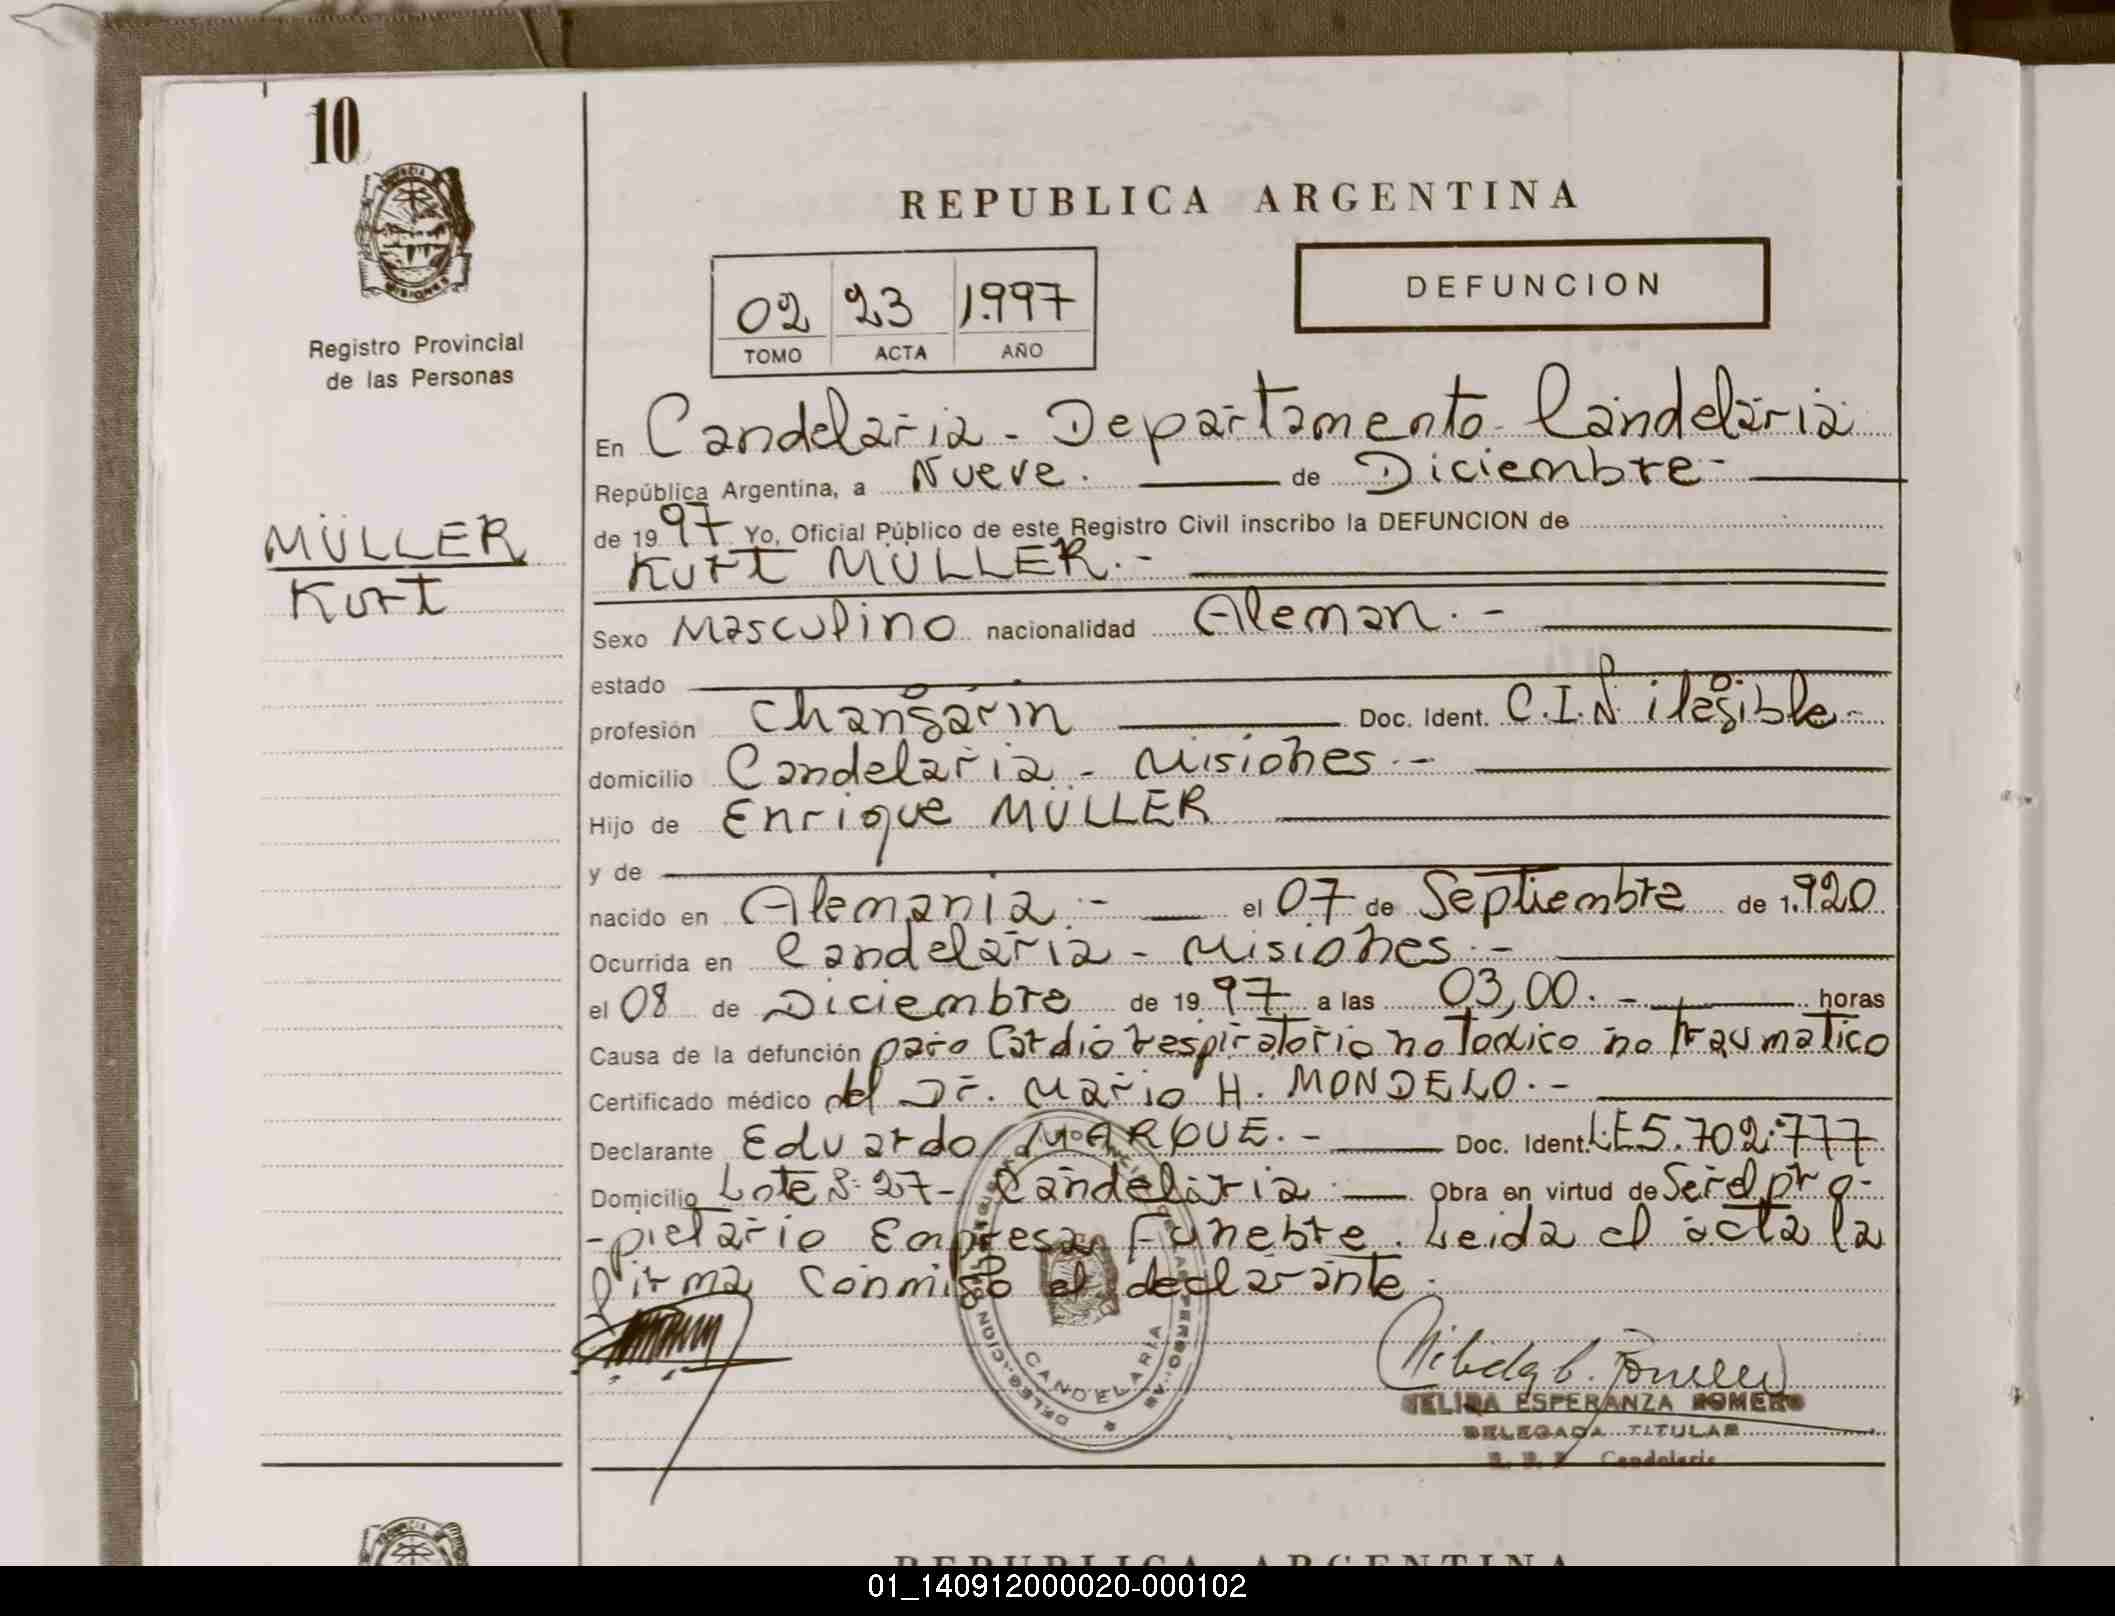 10
REPUBLICA ARGENTINA
DEFUNCION
02 23 1.997
TOMO ACTA AÑO
Registro Provincial
de las Personas
MÜLLER
Kurt
En Candelaria - Departamento Candelaria
República Argentina, a Nueve. de Diciembre -
de 1997 Yo, Oficial Público de este Registro Civil inscribo la DEFUNCION de
Kurt MÜLLER. -
Sexo Masculino nacionalidad Aleman. -
estado
profesión Changarin Doc. Ident. C.I.Nº ilegible -
domicilio Candelaria - Misiones. -
Hijo de Enrique MÜLLER
y de
nacido en Alemania. - el 07 de Septiembre de 1.920
Ocurrida en Candelaria - Misiones. -
el 08 de Diciembre de 1997 a las 03,00. - horas
Causa de la defunción paro Cardio respiratorio no Toxico no traumatico
Certificado médico del Dr. Mario H. MONDELO. -
Declarante Eduardo MARQUE. - Doc. Ident. LE 5.702.777
Domicilio Lote S: 27 - Candelaria Obra en virtud de Ser el pro-
-pietario Empresa Funebre. Leida el acta la
firma conmigo el declarante.
DELEGACION
CANDELARIA
NELIDA ESPERANZA ROMERO
DELEGADA TITULAR
Candelaria
REPUBLICA ARGENTINA
01_140912000020-000102